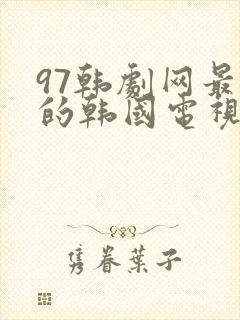 97韩劇网最
的韩國電視
隽眷葉子